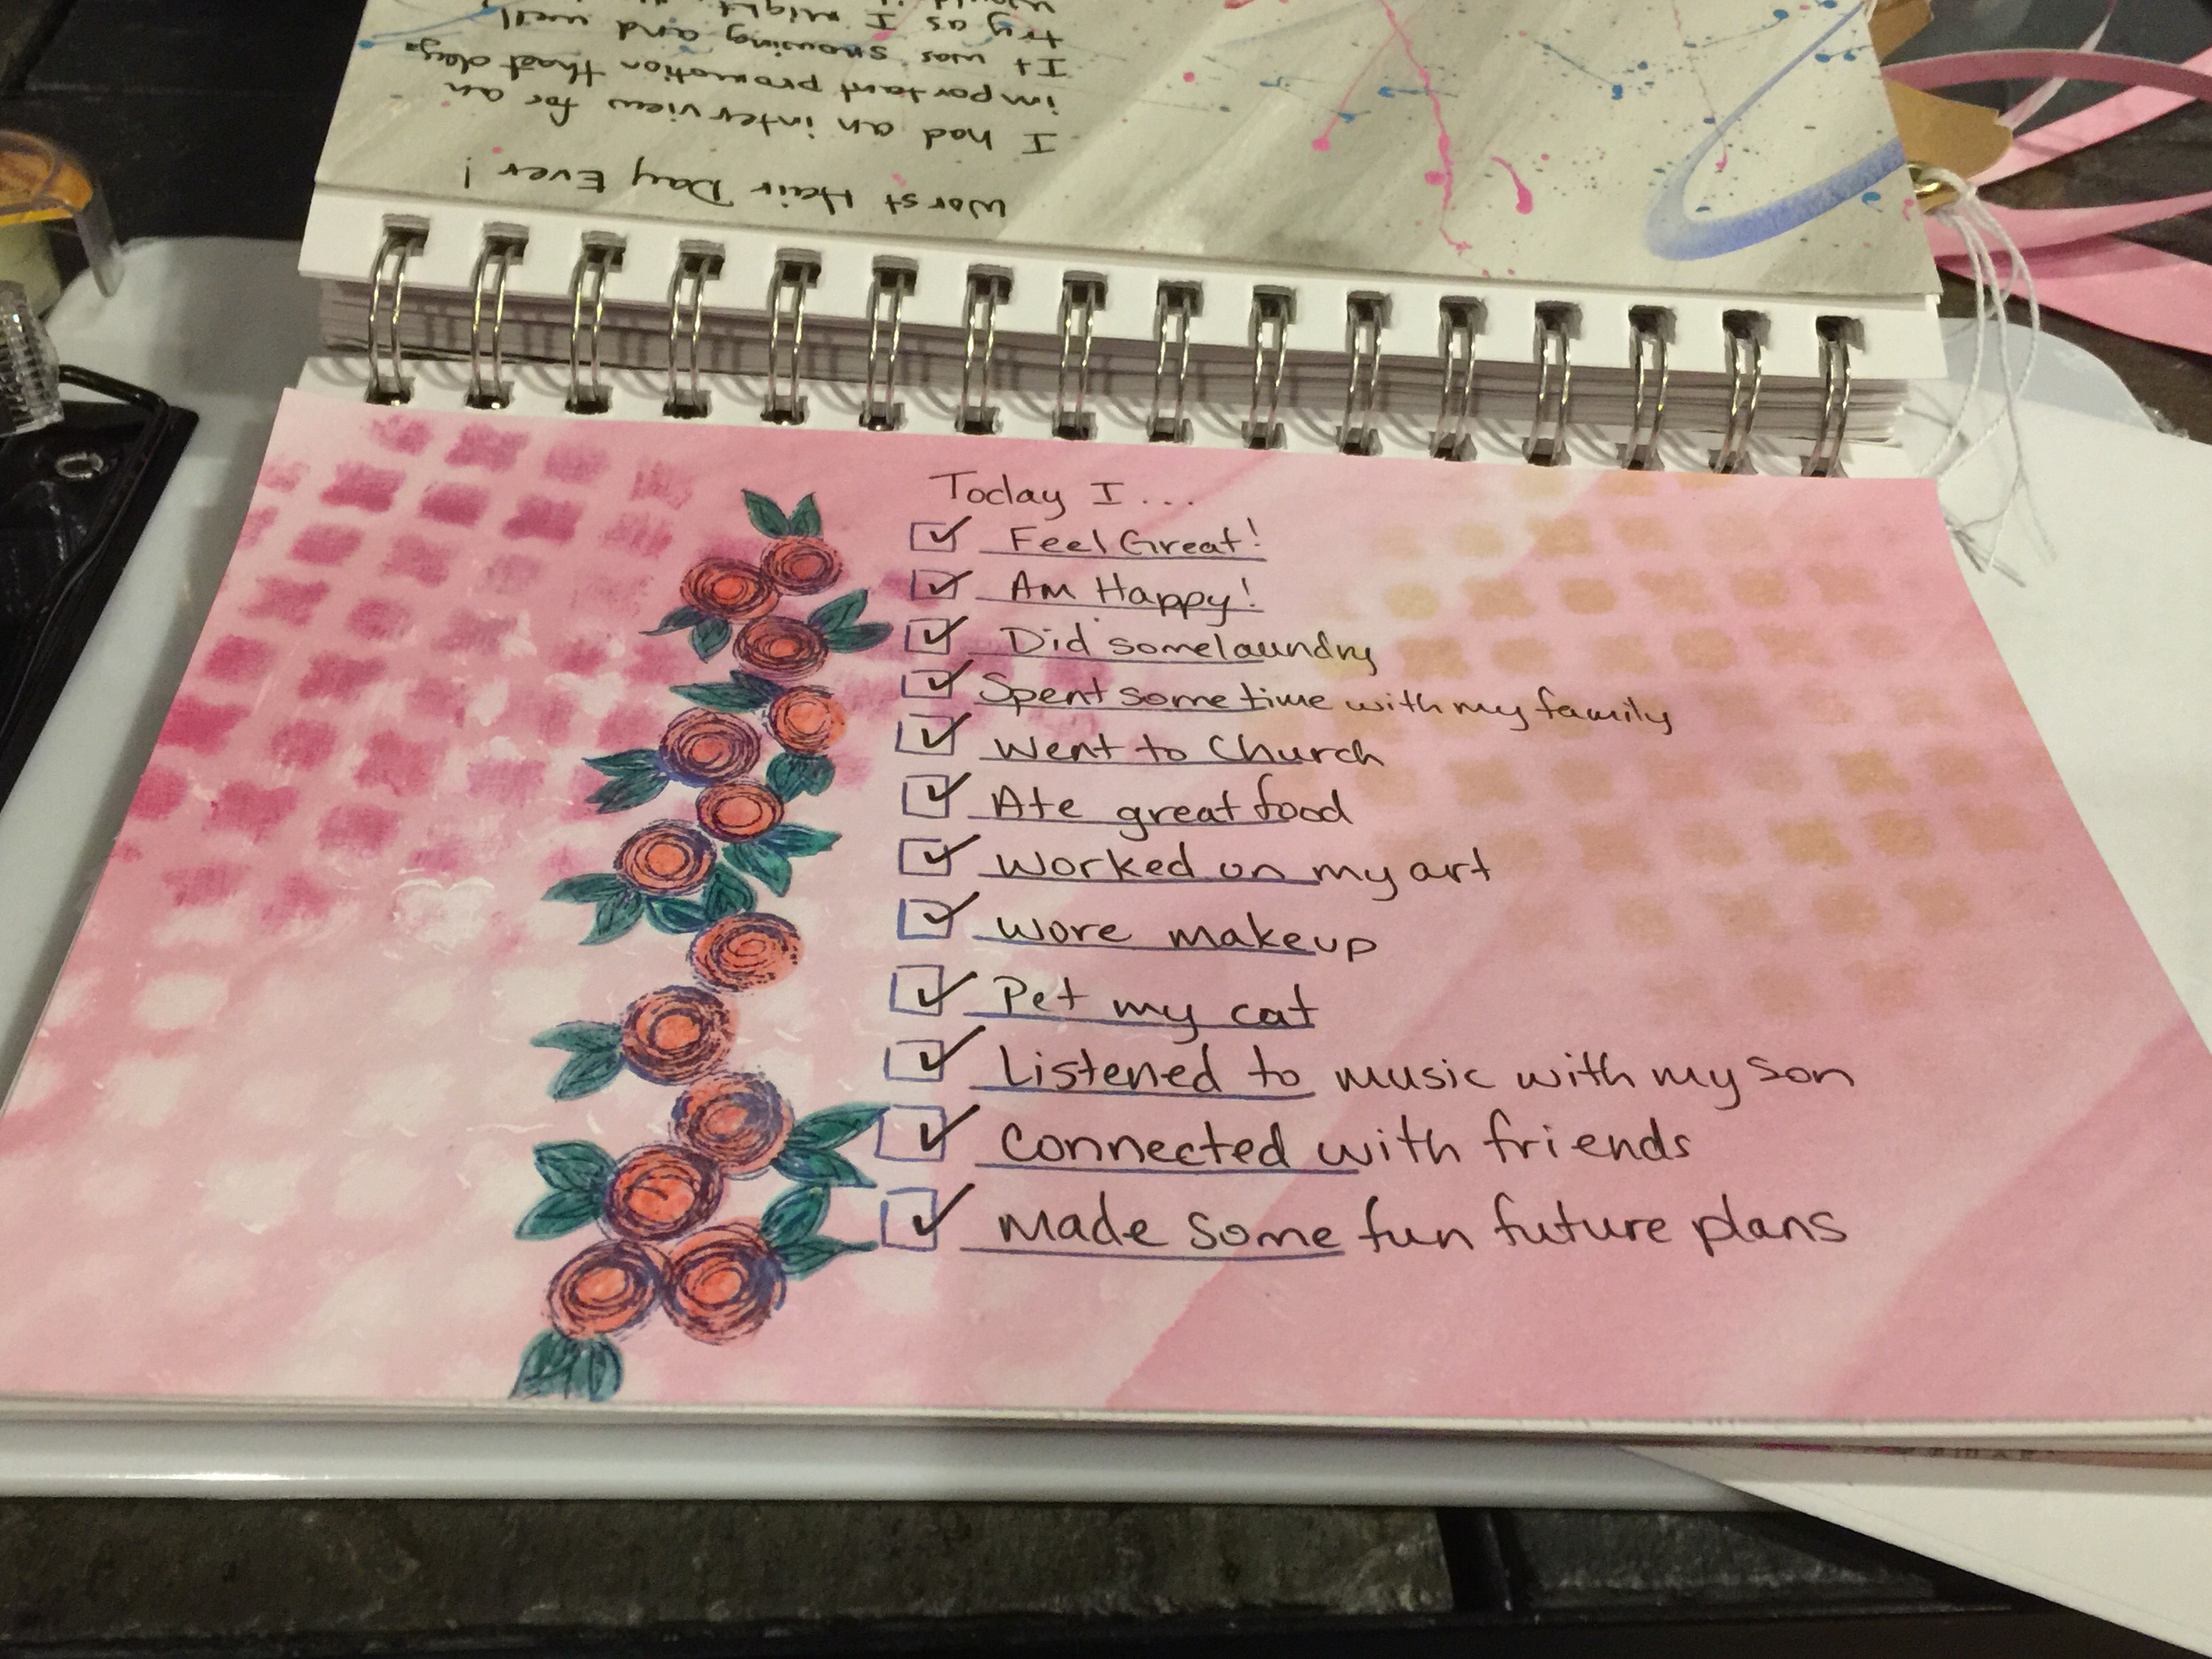 Worst Hair Day Ever!
I had an interview for an
important promotion that day.
It was snowing and well
try as I might
Today I...
Feel Great!
Am Happy!
Did some laundry
Spent some time with my family
Went to Church
Ate great food
Worked on my art
Wore makeup
Pet my cat
Listened to music with my son
Connected with friends
Made some fun future plans